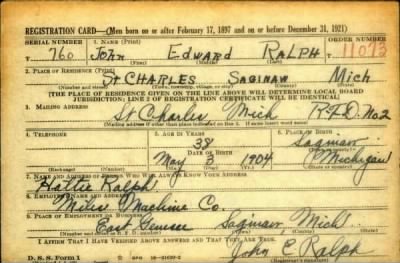 REGISTRATION CARD—(Men born on or after February 17, 1897 and on or before December 31, 1921)
SERIAL NUMBER 1. NAME (Print) ORDER NUMBER
T 760 John Edward Ralph T 11013
(First) (Middle) (Last)
2. PLACE OF RESIDENCE (Print)
St CHARLES SAGINAW Mich
(Number and street) (Town, township, village, or city) (County) (State)
[THE PLACE OF RESIDENCE GIVEN ON THE LINE ABOVE WILL DETERMINE LOCAL BOARD
JURISDICTION; LINE 2 OF REGISTRATION CERTIFICATE WILL BE IDENTICAL]
3. MAILING ADDRESS
St Charles Mich R.F.D. No 2
[Mailing address if other than place indicated on line 2. If same insert word same]
4. TELEPHONE 5. AGE IN YEARS 6. PLACE OF BIRTH
38 Saginaw
DATE OF BIRTH
May 3 1904 Michigan
(Exchange) (Number) (Mo.) (Day) (Yr.) (State or country)
7. NAME AND ADDRESS OF PERSON WHO WILL ALWAYS KNOW YOUR ADDRESS
Hattie Ralph
8. EMPLOYER'S NAME AND ADDRESS
Machine Co.
9. PLACE OF EMPLOYMENT OR BUSINESS
East Genesee Saginaw Mich
I AFFIRM THAT I HAVE VERIFIED ABOVE ANSWERS AND THAT THEY ARE TRUE.
D. S. S. Form 1 John E. Ralph